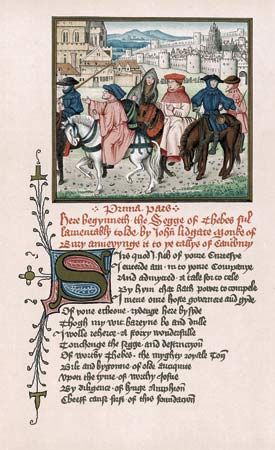 Prima Pars
Here begynneth the Segge of Thebes ful
lamentably tolde by John Lidgate Monke of
Bury anneyynge it to ye tallys of Caunterbury
Sirs quod I sith of youre Curtesye
I entrede am in to youre Companye
And admytted a tale for to telle
By hym that hath power to compele
I mene oure hoste governere and gyde
Of yow echone rydenge here by side
Thogh my wit bareyne be and dulle
I wolle reherce a story wonderfulle
Touchenge the segge and destruccyon
Of worthy Thebes the myghty royale Ton
Bilt and bygonne of olde antiquite
Upon the tyme of worthy Josue
By diligence of kynge Amphion
Cheeff cause first of this foundacion